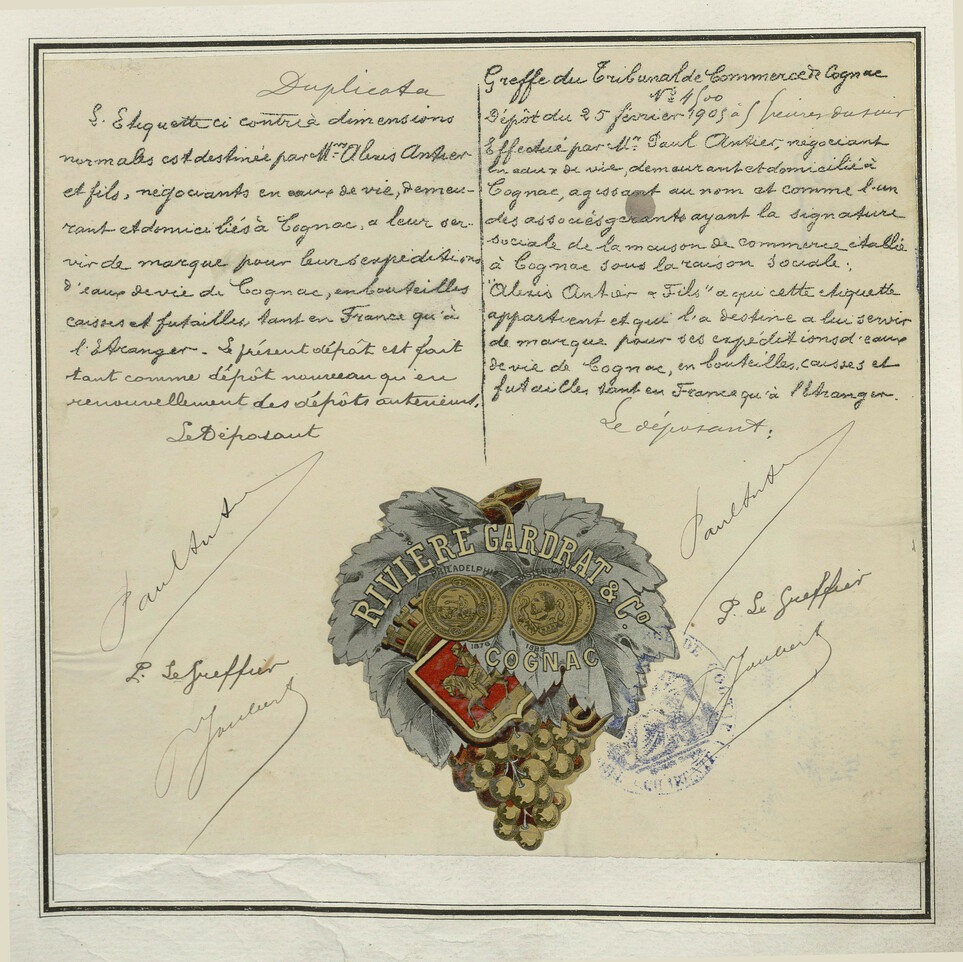 Duplicata
L'Etiquette ci contre à dimensions
normales est destinée par Mrs Alexis Antier
et fils, négociants en eaux de vie, demeu-
rant et domiciliés à Cognac, a leur ser-
vir de marque pour leurs expéditions
d'eaux de vie de Cognac, en bouteilles
caisses et futailles, tant en France qu'à
l'Etranger. Le présent dépôt est fait
tant comme dépôt nouveau qu'en
renouvellement des dépôts antérieurs.
Le Déposant
Paul Antier
P. Le Greffier
Joubert
Greffe du Tribunal de Commerce de Cognac
No 4500
Dépôt du 25 février 1905 à 5 heures du soir
Effectué par Mr. Paul Antier, négociant
en eaux de vie, demeurant et domicilié à
Cognac, agissant au nom et comme l'un
des associés gérants ayant la signature
sociale de la maison de commerce établie
à Cognac sous la raison sociale:
"Alexis Antier & Fils" a qui cette etiquette
appartient et qui l'a destine a lui servir
de marque pour ses expéditions d'eaux
de vie de Cognac, en bouteilles, caisses et
futailles tant en France qu'à l'étranger.
Le déposant:
Paul Antier
P. Le Greffier
Joubert
RIVIÈRE GARDRAT & Co
PHILADELPHIE AMSTERDAM
1876 1883
COGNAC